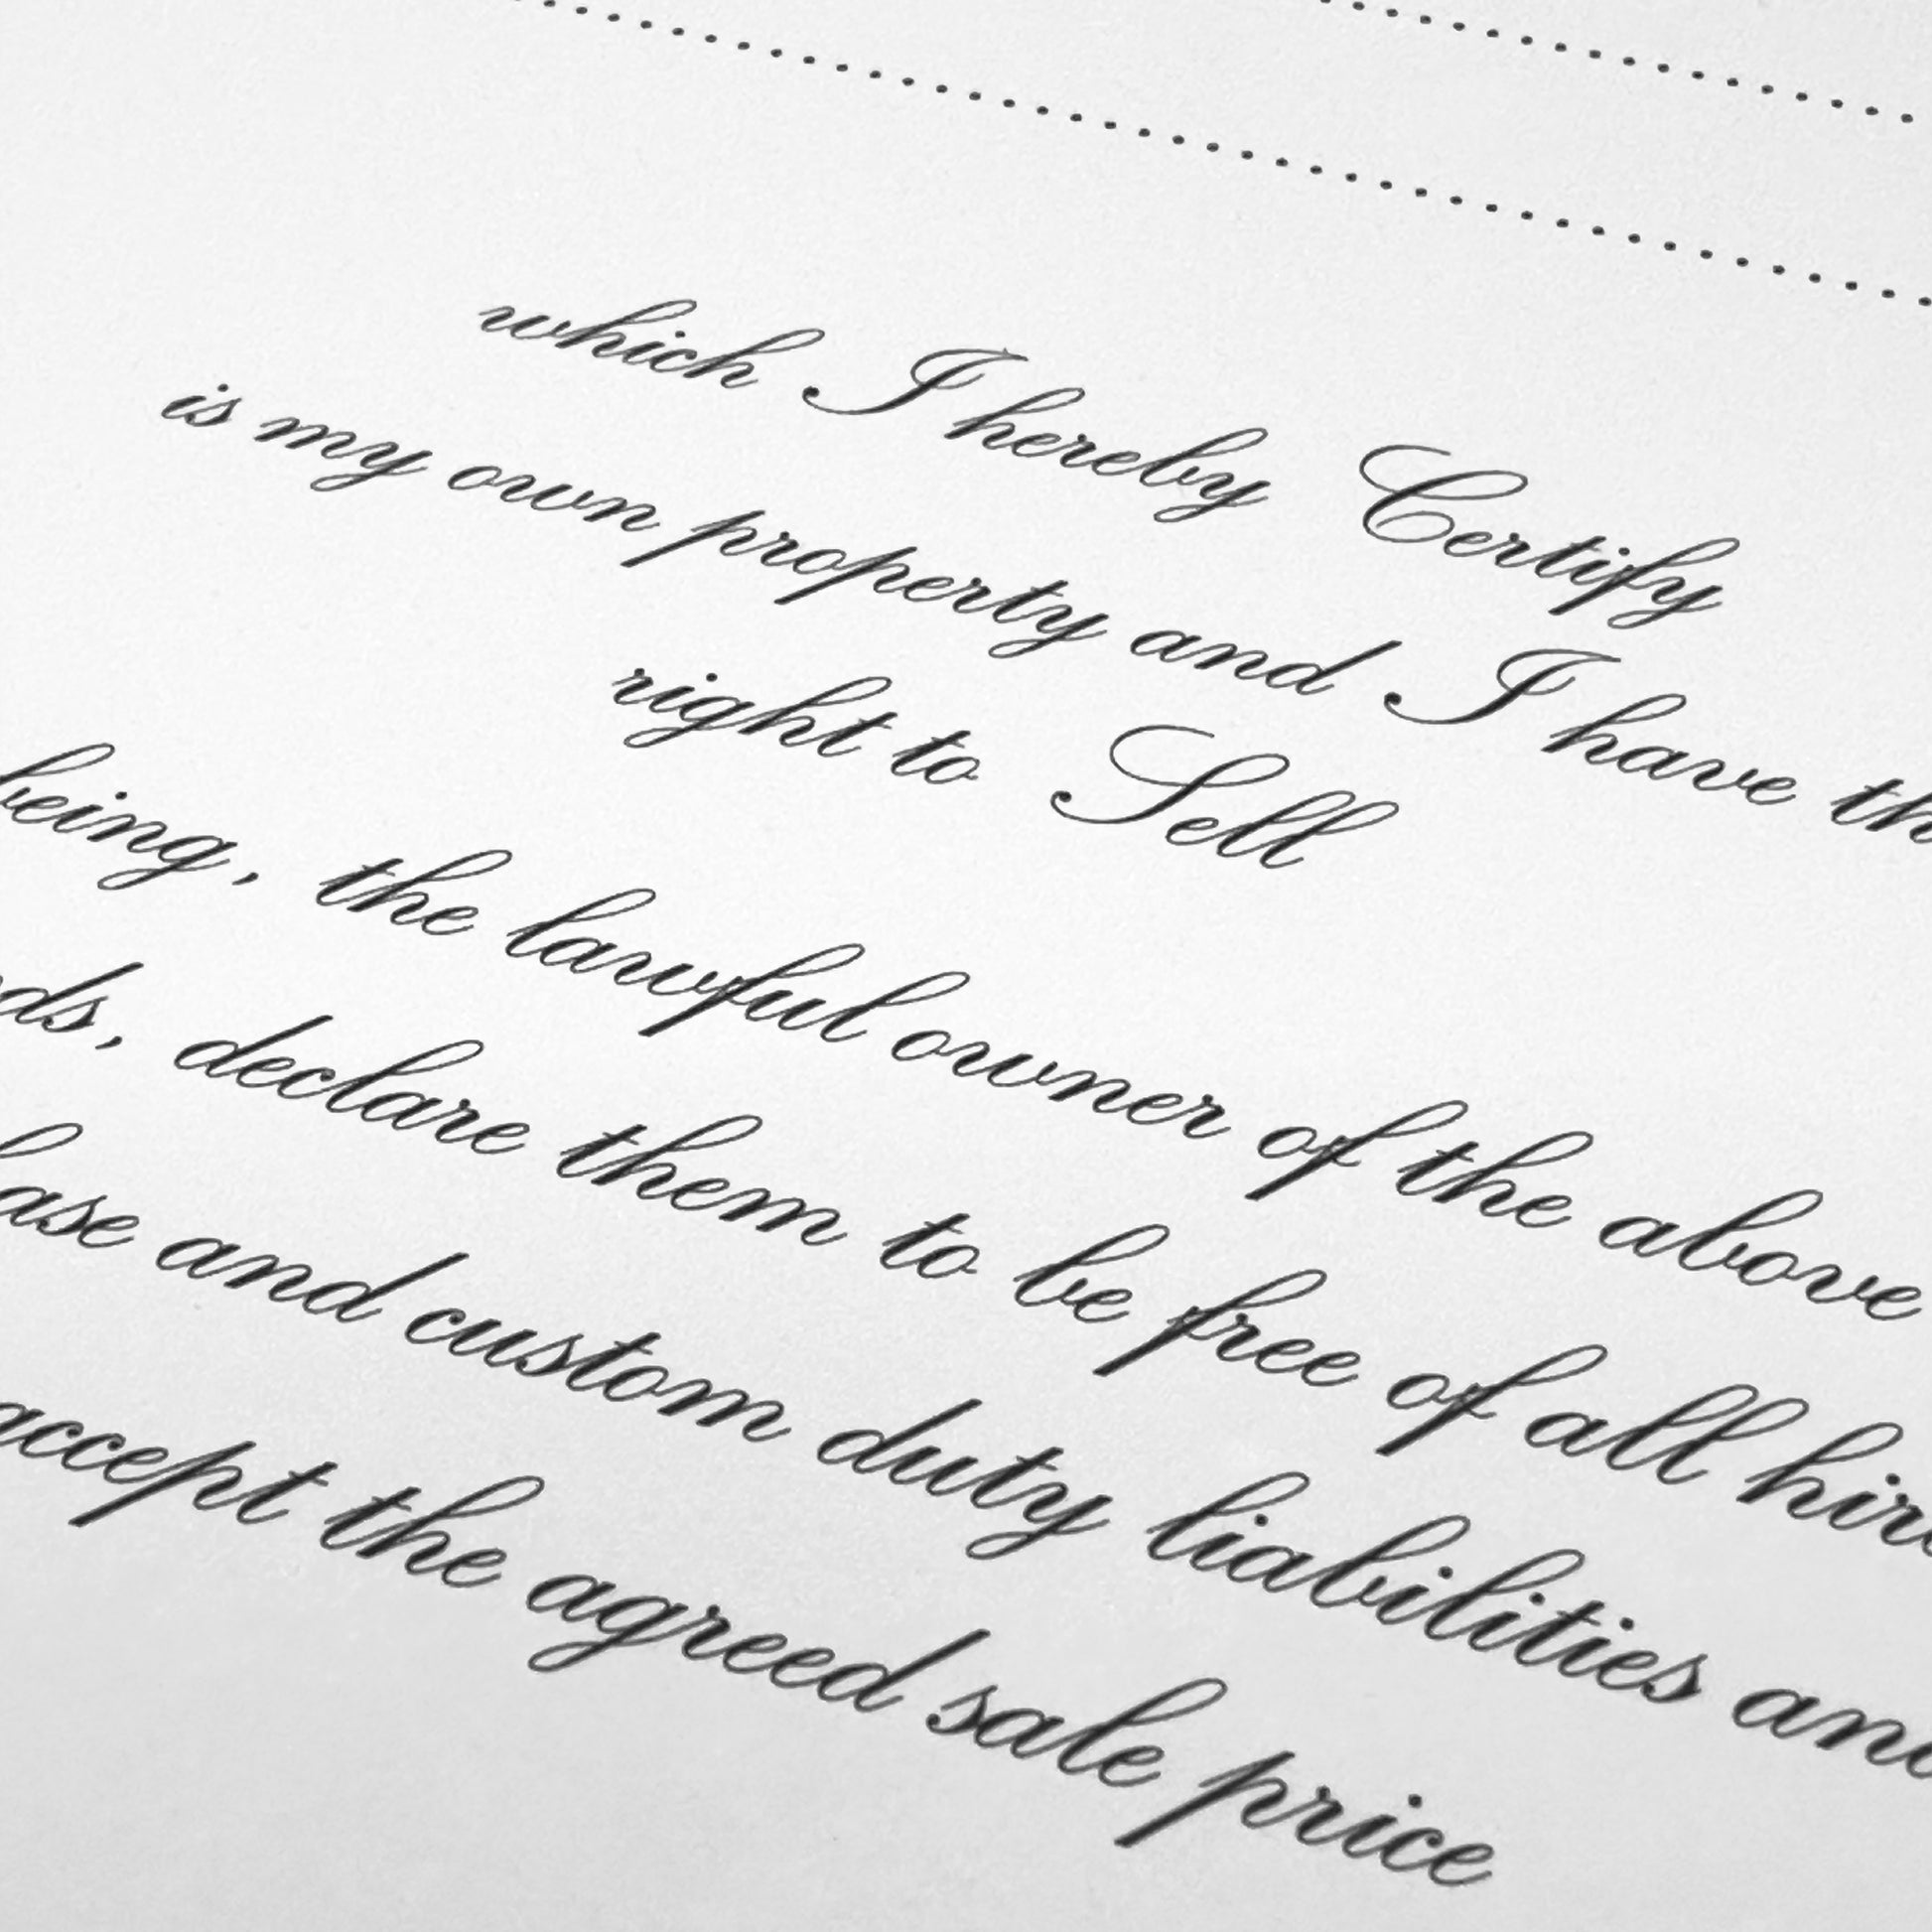 which I hereby Certify
is my own property and I have th
right to Sell
being, the lawful owner of the above
ds, declare them to be free of all hir
ase and custom duty liabilities an
accept the agreed sale price